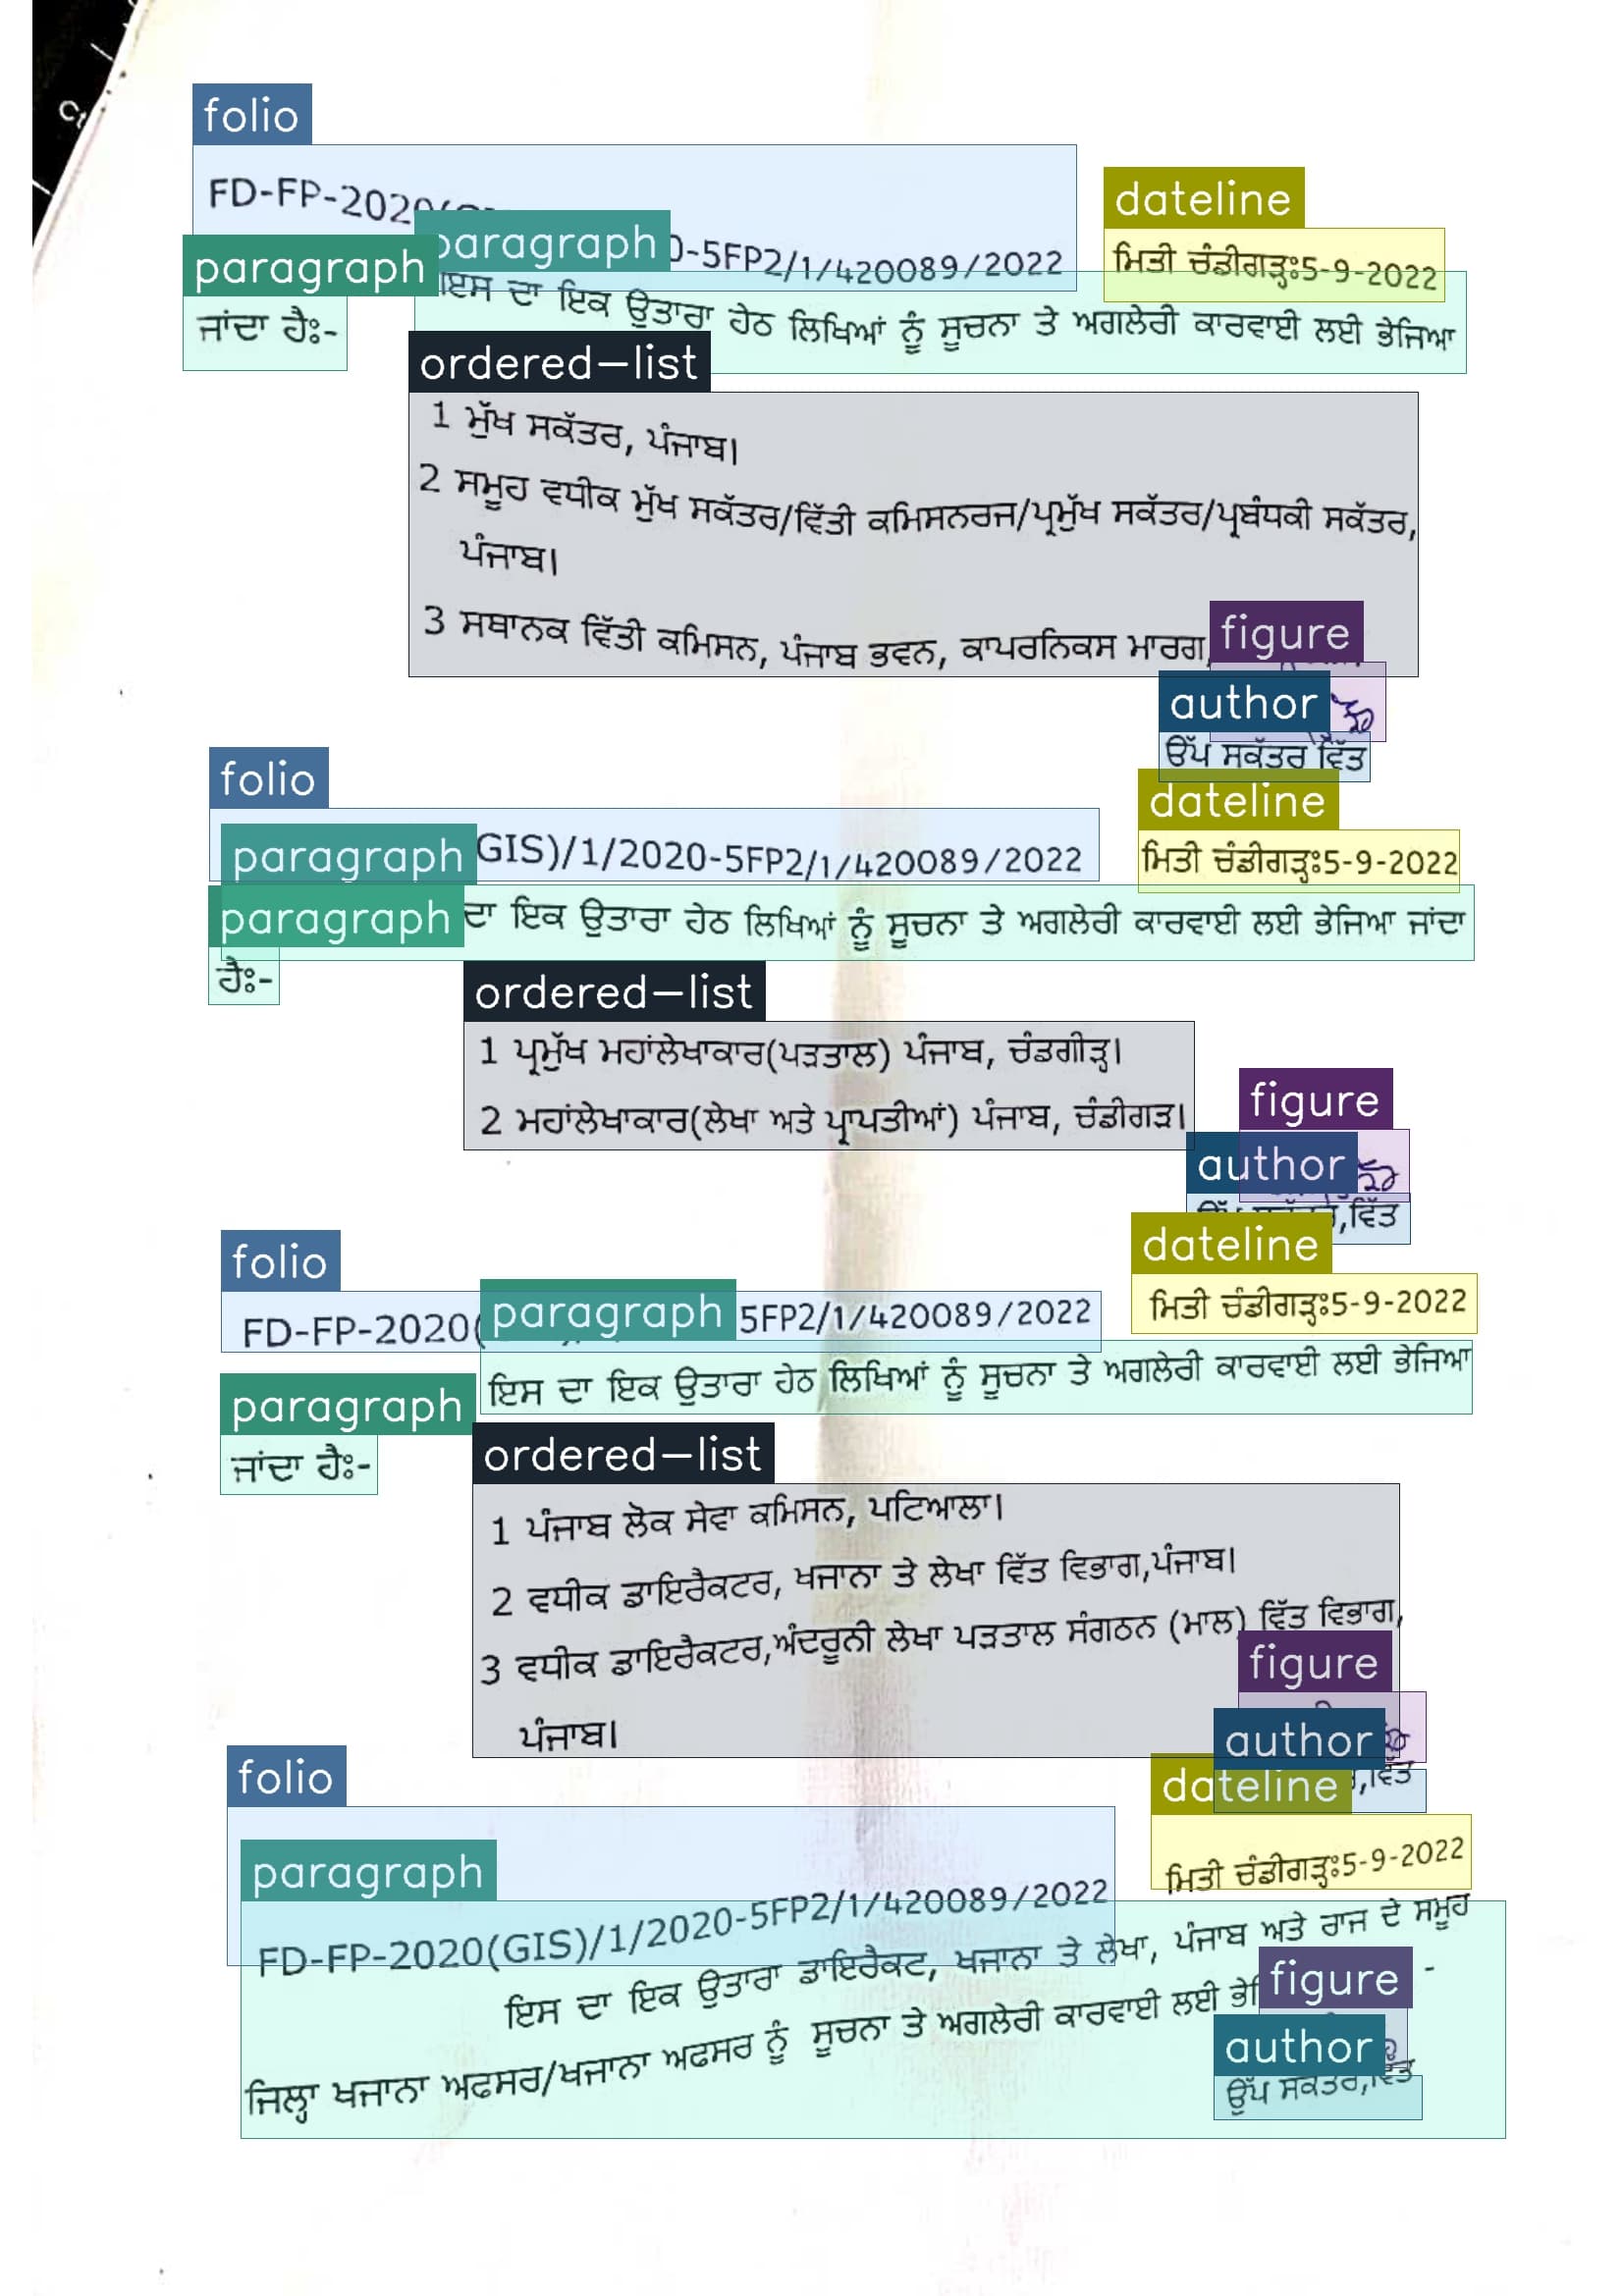 folio
FD-FP-2020
dateline
paragraph -5FP2/1/420089/2022
ਮਿਤੀ ਚੰਡੀਗੜ੍ਹਃ5-9-2022
paragraph
ਇਸ ਦਾ ਇਕ ਉਤਾਰਾ ਹੇਠ ਲਿਖਿਆਂ ਨੂੰ ਸੂਚਨਾ ਤੇ ਅਗਲੇਰੀ ਕਾਰਵਾਈ ਲਈ ਭੇਜਿਆ
ਜਾਂਦਾ ਹੈਃ-
ordered-list
1 ਮੁੱਖ ਸਕੱਤਰ, ਪੰਜਾਬ।
2 ਸਮੂਹ ਵਧੀਕ ਮੁੱਖ ਸਕੱਤਰ/ਵਿੱਤੀ ਕਮਿਸਨਰਜ/ਪ੍ਰਮੁੱਖ ਸਕੱਤਰ/ਪ੍ਰਬੰਧਕੀ ਸਕੱਤਰ,
ਪੰਜਾਬ।
3 ਸਥਾਨਕ ਵਿੱਤੀ ਕਮਿਸਨ, ਪੰਜਾਬ ਭਵਨ, ਕਾਪਰਨਿਕਸ ਮਾਰਗ,
figure
author
ਉੱਪ ਸਕੱਤਰ ਵਿੱਤ
folio
dateline
paragraph GIS)/1/2020-5FP2/1/420089/2022
ਮਿਤੀ ਚੰਡੀਗੜ੍ਹਃ5-9-2022
paragraph
ਦਾ ਇਕ ਉਤਾਰਾ ਹੇਠ ਲਿਖਿਆਂ ਨੂੰ ਸੂਚਨਾ ਤੇ ਅਗਲੇਰੀ ਕਾਰਵਾਈ ਲਈ ਭੇਜਿਆ ਜਾਂਦਾ
ਹੈਃ-
ordered-list
1 ਪ੍ਰਮੁੱਖ ਮਹਾਂਲੇਖਾਕਾਰ(ਪੜਤਾਲ) ਪੰਜਾਬ, ਚੰਡਗੀੜ੍ਹ।
2 ਮਹਾਂਲੇਖਾਕਾਰ(ਲੇਖਾ ਅਤੇ ਪ੍ਰਾਪਤੀਆਂ) ਪੰਜਾਬ, ਚੰਡੀਗੜ।
figure
author
,ਵਿੱਤ
folio
dateline
FD-FP-2020( paragraph 5FP2/1/420089/2022
ਮਿਤੀ ਚੰਡੀਗੜ੍ਹਃ5-9-2022
ਇਸ ਦਾ ਇਕ ਉਤਾਰਾ ਹੇਠ ਲਿਖਿਆਂ ਨੂੰ ਸੂਚਨਾ ਤੇ ਅਗਲੇਰੀ ਕਾਰਵਾਈ ਲਈ ਭੇਜਿਆ
paragraph
ਜਾਂਦਾ ਹੈਃ-
ordered-list
1 ਪੰਜਾਬ ਲੋਕ ਸੇਵਾ ਕਮਿਸਨ, ਪਟਿਆਲਾ।
2 ਵਧੀਕ ਡਾਇਰੈਕਟਰ, ਖਜਾਨਾ ਤੇ ਲੇਖਾ ਵਿੱਤ ਵਿਭਾਗ,ਪੰਜਾਬ।
3 ਵਧੀਕ ਡਾਇਰੈਕਟਰ,ਅੰਦਰੂਨੀ ਲੇਖਾ ਪੜਤਾਲ ਸੰਗਠਨ (ਮਾਲ) ਵਿੱਤ ਵਿਭਾਗ,
ਪੰਜਾਬ।
figure
author
,ਵਿੱਤ
folio
dateline
ਮਿਤੀ ਚੰਡੀਗੜ੍ਹਃ5-9-2022
paragraph
FD-FP-2020(GIS)/1/2020-5FP2/1/420089/2022
ਇਸ ਦਾ ਇਕ ਉਤਾਰਾ ਡਾਇਰੈਕਟ, ਖਜਾਨਾ ਤੇ ਲੇਖਾ, ਪੰਜਾਬ ਅਤੇ ਰਾਜ ਦੇ ਸਮੂਹ
ਜਿਲ੍ਹਾ ਖਜਾਨਾ ਅਫਸਰ/ਖਜਾਨਾ ਅਫਸਰ ਨੂੰ ਸੂਚਨਾ ਤੇ ਅਗਲੇਰੀ ਕਾਰਵਾਈ ਲਈ
figure
author
ਉੱਪ ਸਕੱਤਰ,ਵਿੱਤ